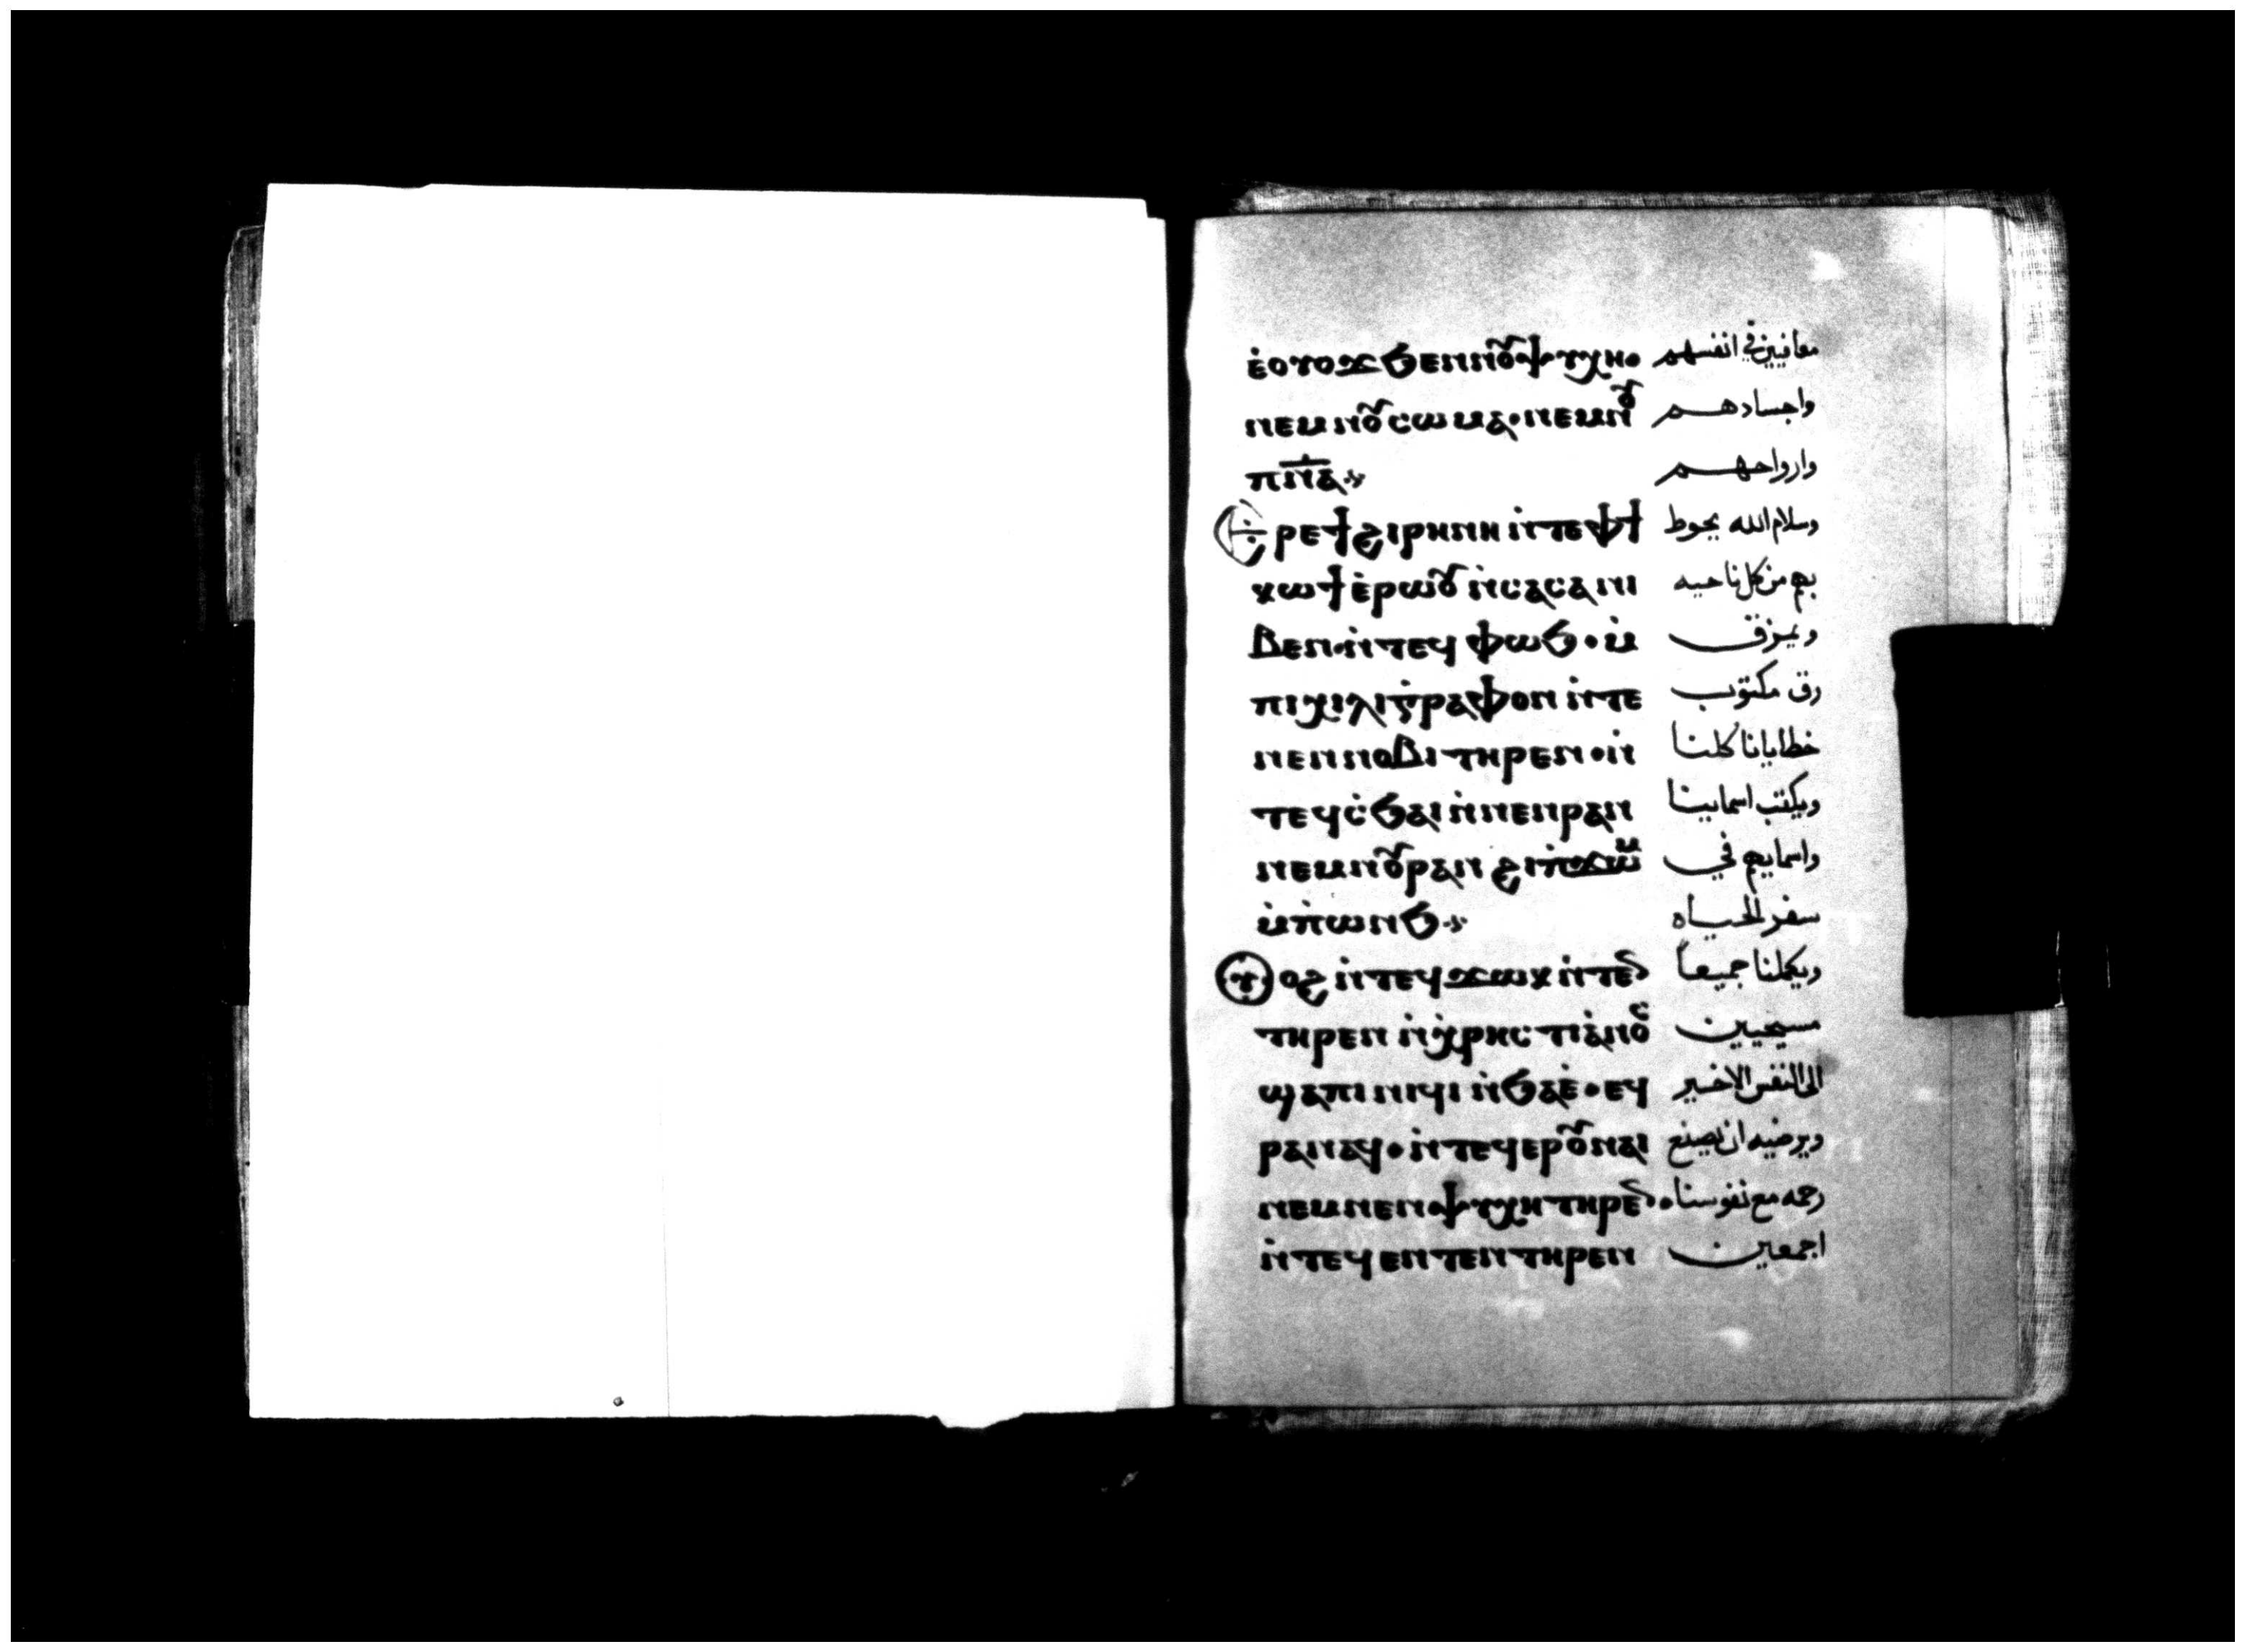 ⲉ̇ⲟⲩⲟϫ ϧⲉⲛⲛⲟⲩⲯⲩⲭⲏ· معافيين في انفسهم
ⲛⲉⲙⲛⲟⲩⲥⲱⲙⲁ· ⲛⲉⲙⲛⲟⲩ واجسادهم
ⲡ̅ⲛ̅ⲁ̅ وارواحهم
ⲉⲣⲉϯϩⲓⲣⲏⲛⲏ ⲛ̇ⲧⲉⲫϯ وسلام الله يحوط
ⲕⲱϯ ⲉ̇ⲣⲱⲟⲩ ⲛ̇ⲥⲁⲥⲁⲛⲓ بهم من كل ناحيه
ⲃⲉⲛ· ⲛ̇ⲧⲉϥⲫⲱϧ· ⲙ̇ ويمزق
ⲡⲓⲭⲓⲗⲓⲅ̇ⲣⲁⲫⲟⲛ ⲛ̇ⲧⲉ رق مكتوب
ⲛⲉⲛⲛⲟⲃⲓ ⲧⲏⲣⲉⲛ· ⲛ̇ خطايانا كلنا
ⲧⲉϥⲥ̇ϧⲁⲓ ⲛ̇ⲛⲉⲛⲣⲁⲛ ويكتب اسماينا
ⲛⲉⲙⲛⲟⲩⲣⲁⲛ ϩⲓⲡ̇ϫⲱⲙ واسمايهم في
ⲙ̇ⲡ̇ⲱⲛϧ سفر الحياه
ⲟⲩⲟϩ ⲛ̇ⲧⲉϥϫⲱⲕ ⲛ̇ⲧⲉⲛ ويكملنا جميعا
ⲧⲏⲣⲉⲛ ⲛ̇ⲭ̇ⲣⲏⲥⲧⲓⲁ̇ⲛⲟⲥ مسيحيين
ϣⲁⲡⲓⲛⲓϥⲓ ⲛ̇ϧⲁⲉ̇· ⲉϥ الى النفس الاخير
ⲣⲁⲛⲁϥ· ⲛ̇ⲧⲉϥⲉⲣⲟⲩⲛⲁⲓ ويرضيه ان يصنع
ⲛⲉⲙⲛⲉⲛⲯⲩⲭⲏ ⲧⲏⲣⲉⲛ· رحمه مع نفوسنا
ⲛ̇ⲧⲉϥⲉⲛⲧⲉⲛ ⲧⲏⲣⲉⲛ اجمعين